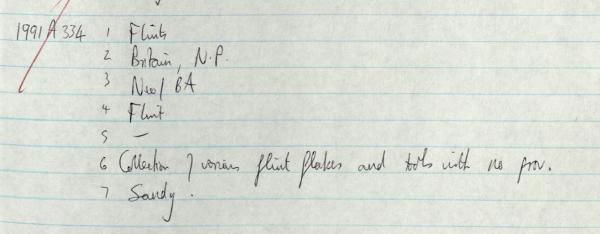 1991A334 1 Flints
2 Britain, N.P.
3 Neo/BA
4 Flint
5 —
6 Collection of various flint flakes and tools with no prov.
7 Sandy.